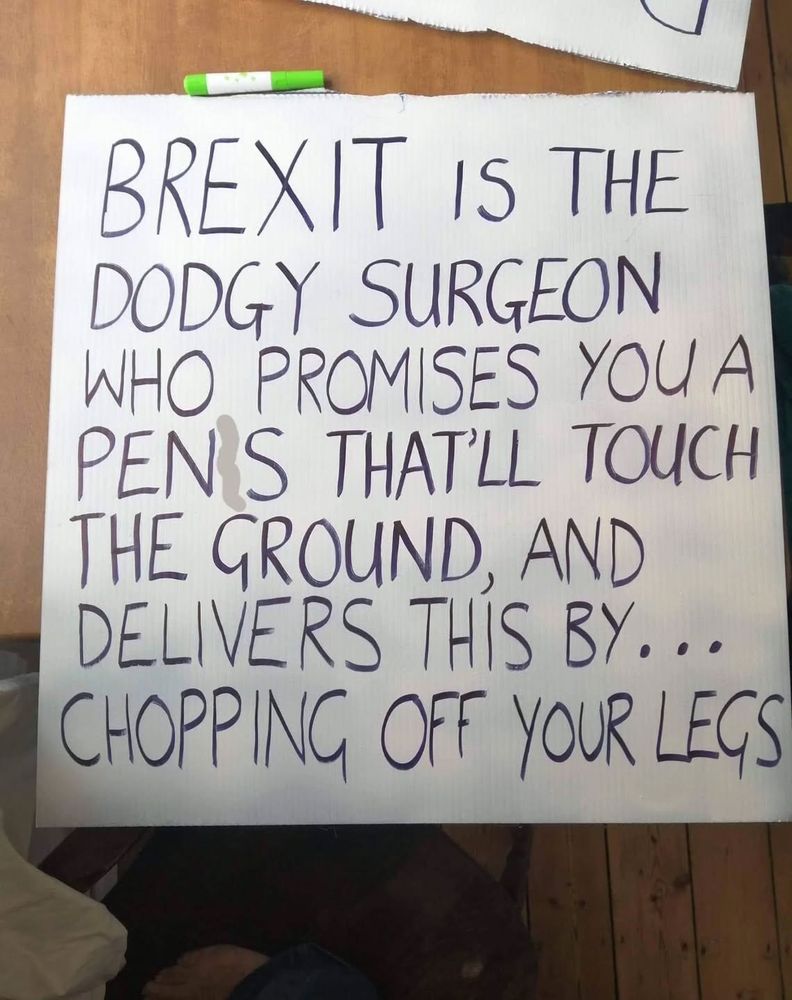 BREXIT IS THE
DODGY SURGEON
WHO PROMISES YOU A
PENIS THAT'LL TOUCH
THE GROUND, AND
DELIVERS THIS BY...
CHOPPING OFF YOUR LEGS